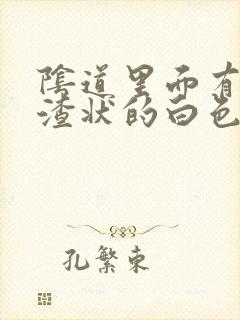 陰道里面有
渣状的白色
孔繁東